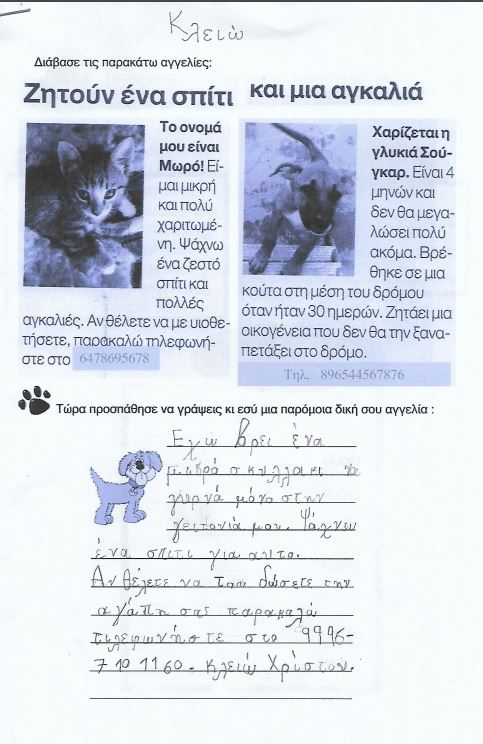 Κλειώ
Διάβασε τις παρακάτω αγγελίες:
Ζητούν ένα σπίτι και μια αγκαλιά
Το ονομά
μου είναι
Μωρό! Εί-
μαι μικρή
και πολύ
χαριτωμέ-
νη. Ψάχνω
ένα ζεστό
σπίτι και
πολλές
αγκαλιές. Αν θέλετε να με υιοθε-
τήσετε, παρακαλώ τηλεφωνή-
στε στο 6478695678
Χαρίζεται η
γλυκιά Σού-
γκαρ. Είναι 4
μηνών και
δεν θα μεγα-
λώσει πολύ
ακόμα. Βρέ-
θηκε σε μια
κούτα στη μέση του δρόμου
όταν ήταν 30 ημερών. Ζητάει μια
οικογένεια που δεν θα την ξανα-
πετάξει στο δρόμο.
Τηλ. 896544567876
Τώρα προσπάθησε να γράψεις κι εσύ μια παρόμοια δική σου αγγελία :
Εχω βρει ένα
μικρό σκυλλακι να
γυρνά μόνο στην
γειτονιά μου. Ψάχνω
ένα σπιτι για αυτο.
Αν θέλετε να του δώσετε την
αγάπη σας παρακαλώ
τιλεφωνήστε στο 9996-
7101160. Κλειώ Χρίστου.